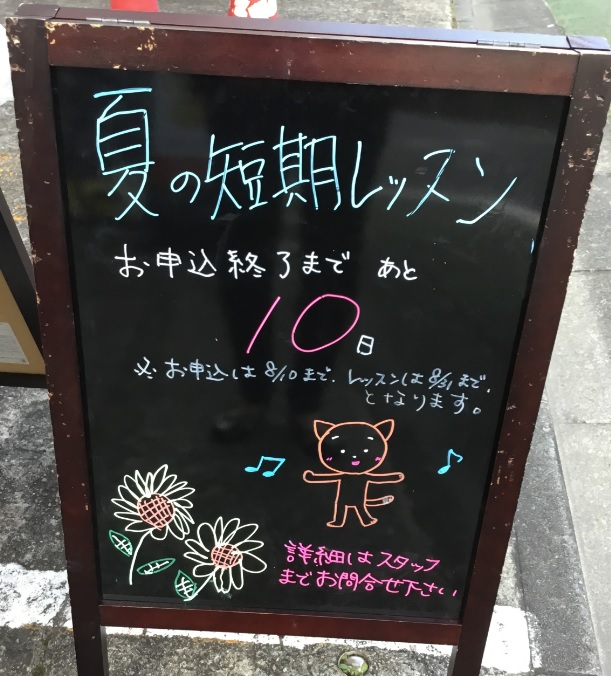 夏の短期レッスン
お申込終了まで あと
10日
※ お申込は8/10まで、レッスンは8/31まで、
となります。
詳細はスタッフ
までお問合せ下さい